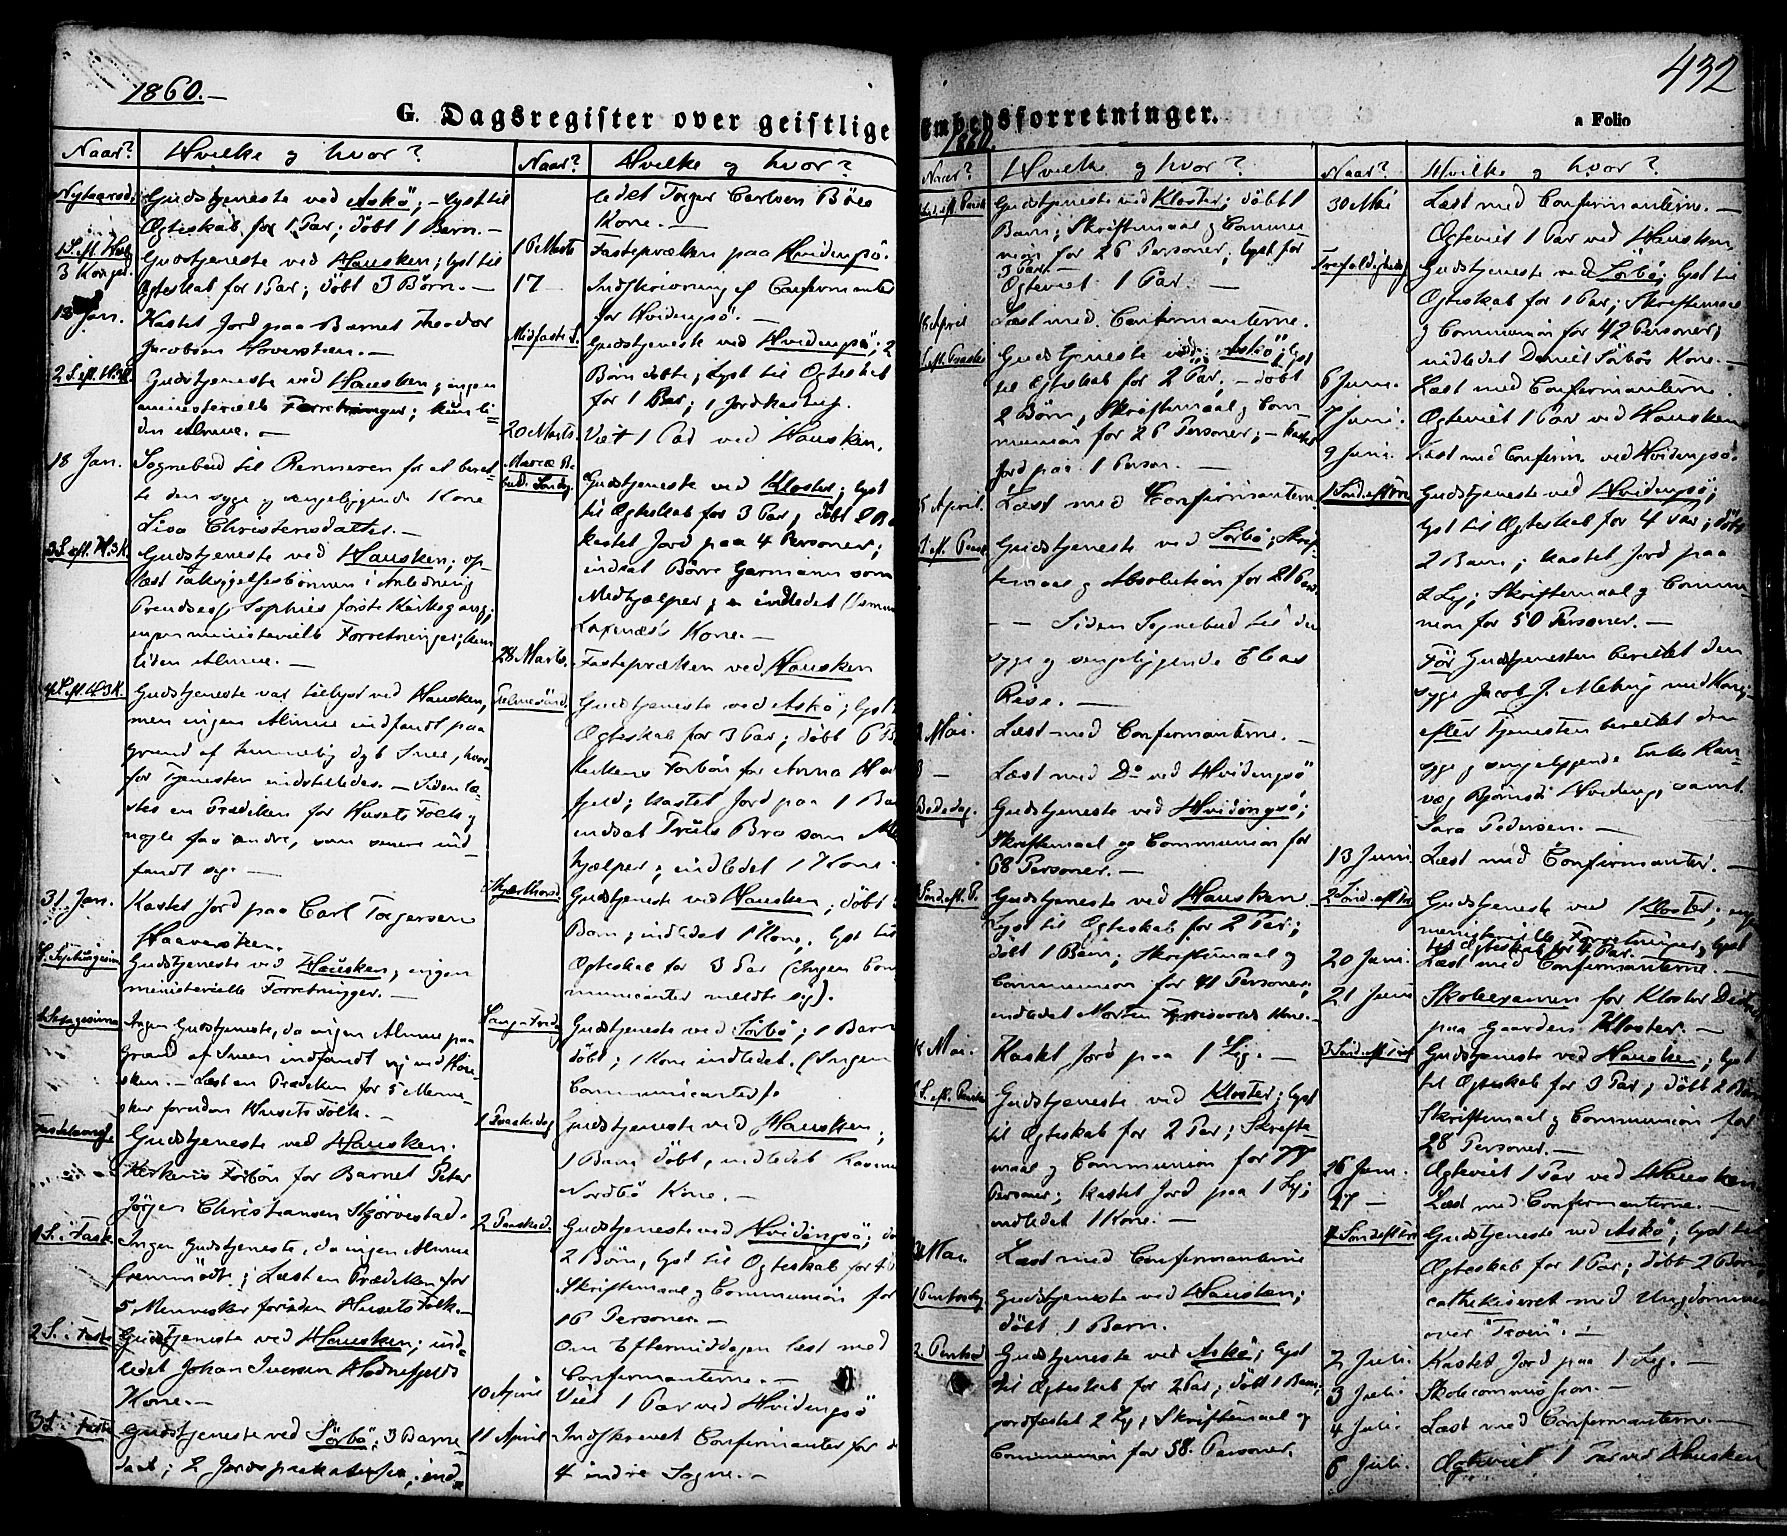 1860.
432
G. Dagsregister over geistlige
Embedsforretninger.
a Folio
1860.
Naar?
Hvilke og hvor?
Nytaarsd.
Gudstjeneste ved Askö; – lyst til
Ægteskab for 1 Par; döbt 1 Barn. –
1 S. eft. Hell.
3 Konger
Gudstjeneste ved Hausken; lyst til
Ægteskab for 1 Par; döbt 3 Börn. –
13 Jan.
Kastet Jord paa Barnet Theodor
Jacobsen Haverstein. –
2 S. eft. H. 3 K.
Gudstjeneste ved Hausken; ingen
ministerielle Forretninger; kun li-
den Almue. –
18 Jan.
Sognebud til Renneren for at beret-
te den syge og sengeliggende Kone
Lisa Christensdatter. –
3 S. eft. H. 3 K.
Gudstjeneste ved Hausken; op-
læst Taksigelsesbönnen i Anledning
Prindsesse Sophies förste Kirkegang;
ingen ministerielle Forretninger; kun
liden Almue. –
4 S. eft. H 3 K.
Gudstjeneste var tillyst ved Hausken,
men ingen Almue indfandt paa
Grund af dyb Snee, hvor-
for Tjenesten indstilledes. – Siden læ-
stes en Prædiken for Husets Folk og
nogle faa andre, som senere ind-
fandt sig. –
31 Jan.
Kastet Jord paa Carl Torgersen
Haaverstein.
S. Septuagesima
Gudstjeneste ved Hausken; ingen
ministerielle Forretninger. –
S. Sexagesima
Ingen Gudstjeneste, da ingen Almue paa
Grund af Sneen indfandt sig ved Hau-
sken. – Læst en Prædiken for 5 Menne-
sker foruden Husets Folk. –
Fastelavns
Gudstjeneste ved Hausken.
Kirkens Forbön for Barnet Peter
Jörgen Christiansen Skjörvestad.
1 S. i Faste
Ingen Gudstjeneste, da ingen Almue
fremmödte; Læst en Prædiken for
5 Mennesker foruden Husets Folk. –
2 S. i Faste
Gudstjeneste ved Hausken; ind-
ledet Johan Iversen Hodnefjelds
Kone. –
3 S. i Faste
Gudstjeneste ved Sörbö; 3 Barne-
daab; 2 Jordspaakastelser; ind-
Naar?
Hvilke og hvor?
ledet Torger Carlsen Böes
Kone. –
16 Marts
Fastepræken paa Hvidingsö.
17 –
Indskrivning af Confirmanter
for Hvidingsö. –
Midfaste S.
Gudstjeneste ved Hvidingsö; 2
Börn döbte; Lyst til Ægteskab
for 1 Par; 1 Jordkastelse.
20 Marts
Viet 1 Par ved Hausken.
Mariæ Be-
bud. Søndag
Gudstjeneste ved Kloster; lyst
til Ægteskab for 3 Par; döbt 2
kastet Jord paa 4 Personer;
indsat Börre Garmann som
Medhjælper; indledet
Kone. –
28 Marts
Fastepræken ved Hausken
Palmesönd.
Gudstjeneste ved Askö; lyst
Ægteskab for 3 Par; döbt 6
Kirkens Forbön for Anna
fjeld; kastet Jord paa 1
indsat Truls Bru som
hjælper; indledet 1 Kone.
Skjærthorsd.
Gudstjeneste ved Hausken; döbt
Barn; indledet 1 Kone; lyst til
Ægteskab for 3 Par (Ingen Com-
municanter meldte sig).
Langfredag
Gudstjeneste ved Sörbö; 1 Barn
döbt; 1 Kone indledet. (Ingen
Communicanter).
1 Paaskedag
Gudstjeneste ved Hausken;
1 Barn döbt; indledet
Nordbö Kone. –
2 Paasked.
Gudstjeneste ved Hvidingsö;
2 Börn, lyst til Ægteskab for
Skriftemaal og Communion for
16 Personer. –
Om Eftermiddagen læst med
Confirmanterne. –
10 April
Viet 1 Par ved Hvidingsö
11 April
Indskrevet Confirmanter for de
4 indre Sogne. –
Naar?
Hvilke og hvor?
Gudstjeneste ved Kloster; döbt 1
Barn; Skriftemaal og Commu-
nion for 26 Personer; lyst for
3 Par.
Ægteviet 1 Par. –
18 April
Læst med Confirmanterne.
Gudstjeneste ved Askö; lyst
til Ægteskab for 2 Par; – döbt
2 Börn, Skriftemaal og Com-
munion for 26 Personer; – kastet
Jord paa 1 Person. –
25 April.
Læst med Confirmanterne.
Gudstjeneste ved Sörbö; Skrif-
temaal og Absolution for 21 Pers.
– – Siden Sognebud til den
syge og sengeliggende Elias
Rise. –
2 Mai.
Læst med Confirmanterne. –
3 –
Læst med Do ved Hvidingsö
Bededag.
Gudstjeneste ved Hvidingsö;
Skriftemaal og Communion for
68 Personer. –
Sönd. eft. P.
Gudstjeneste ved Hausken –
Lyst til Ægteskab for 2 Par;
döbt 1 Barn; Skriftemaal og
Communion for 41 Personer;
indledet Morten Kone. –
Mai.
Kastet Jord paa 1 Lig. –
6 S. eft. Paaske
Gudstjeneste ved Kloster; lyst
til Ægteskab for 2 Par; Skrifte-
maal og Communion for
Personer; kastet Jord paa 1 Lig;
indledet 1 Kone. –
Mai.
Læst med Confirmanterne
1 Pintsedag
Gudstjeneste ved Hausken;
döbt 1 Barn.
2. Pintsed.
Gudstjeneste ved Askö; lyst
til Ægteskab for 2 Par; döbt 1 Barn;
jordfæstet 2 Lig; Skriftemaal og
Communion for 58 Personer.
Naar?
Hvilke og hvor?
30 Mai
Læst med Confirmanterne. –
Ægteviet 1 Par ved Hausken
Trefoldighed
Gudstjeneste ved Sörbö; lyst til
Ægteskab for 1 Par; Skriftemaal
og Communion for 42 Personer;
indledet Daniel Sörbös Kone. –
6 Juni.
Læst med Confirmanterne
7 Juni.
Ægteviet 1 Par ved Hausken
9 Juni.
Læst med Confirm. ved Hvidingsö.
1 Sönd. eft. Tref.
Gudstjeneste ved Hvidingsö;
lyst til Ægteskab for 4 Par; döbt
2 Barn; kastet Jord paa
2 Lig; Skriftemaal og Commu-
nion for 50 Personer. –
Før Gudstjenesten berettet den
syge Jacob J. Meling
efter Tjenesten berettet den
syge og sengeliggende Enke
Björnsd. Hviding, samt
Sara Pedersen. –
13 Juni
Læst med Confirmanter. –
2 Sönd. eft. Tref.
Gudstjeneste ved Kloster; ingen
ministerielle Forretninger; lyst
til Ægteskab for 4 Par.
20 Juni.
Læst med Confirmanterne. –
21 Juni
Skoleexamen for Kloster
paa Gaarden Kloster. –
3 Sönd. eft. Tref.
Gudstjeneste ved Hausken; lyst
til Ægteskab for 3 Par; döbt 2 Börn
Skriftemaal og Communion for
28 Personer. –
26 Juni.
Ægteviet 1 Par ved Hausken
27 –
Læst med Confirmanterne. –
4 Sönd. eft. Tref.
Gudstjeneste ved Askö; lyst til
Ægteskab for 1 Par; döbt 2 Börn;
cathekiseret med Ungdommen
over "Troen". –
2 Juli.
Kastet Jord paa 1 Lig. –
3 Juli.
Skolecommission. –
4 Juli.
Læst med Confirmanterne. –
6 Juli.
Ægteviet 1 Par ved Hausken